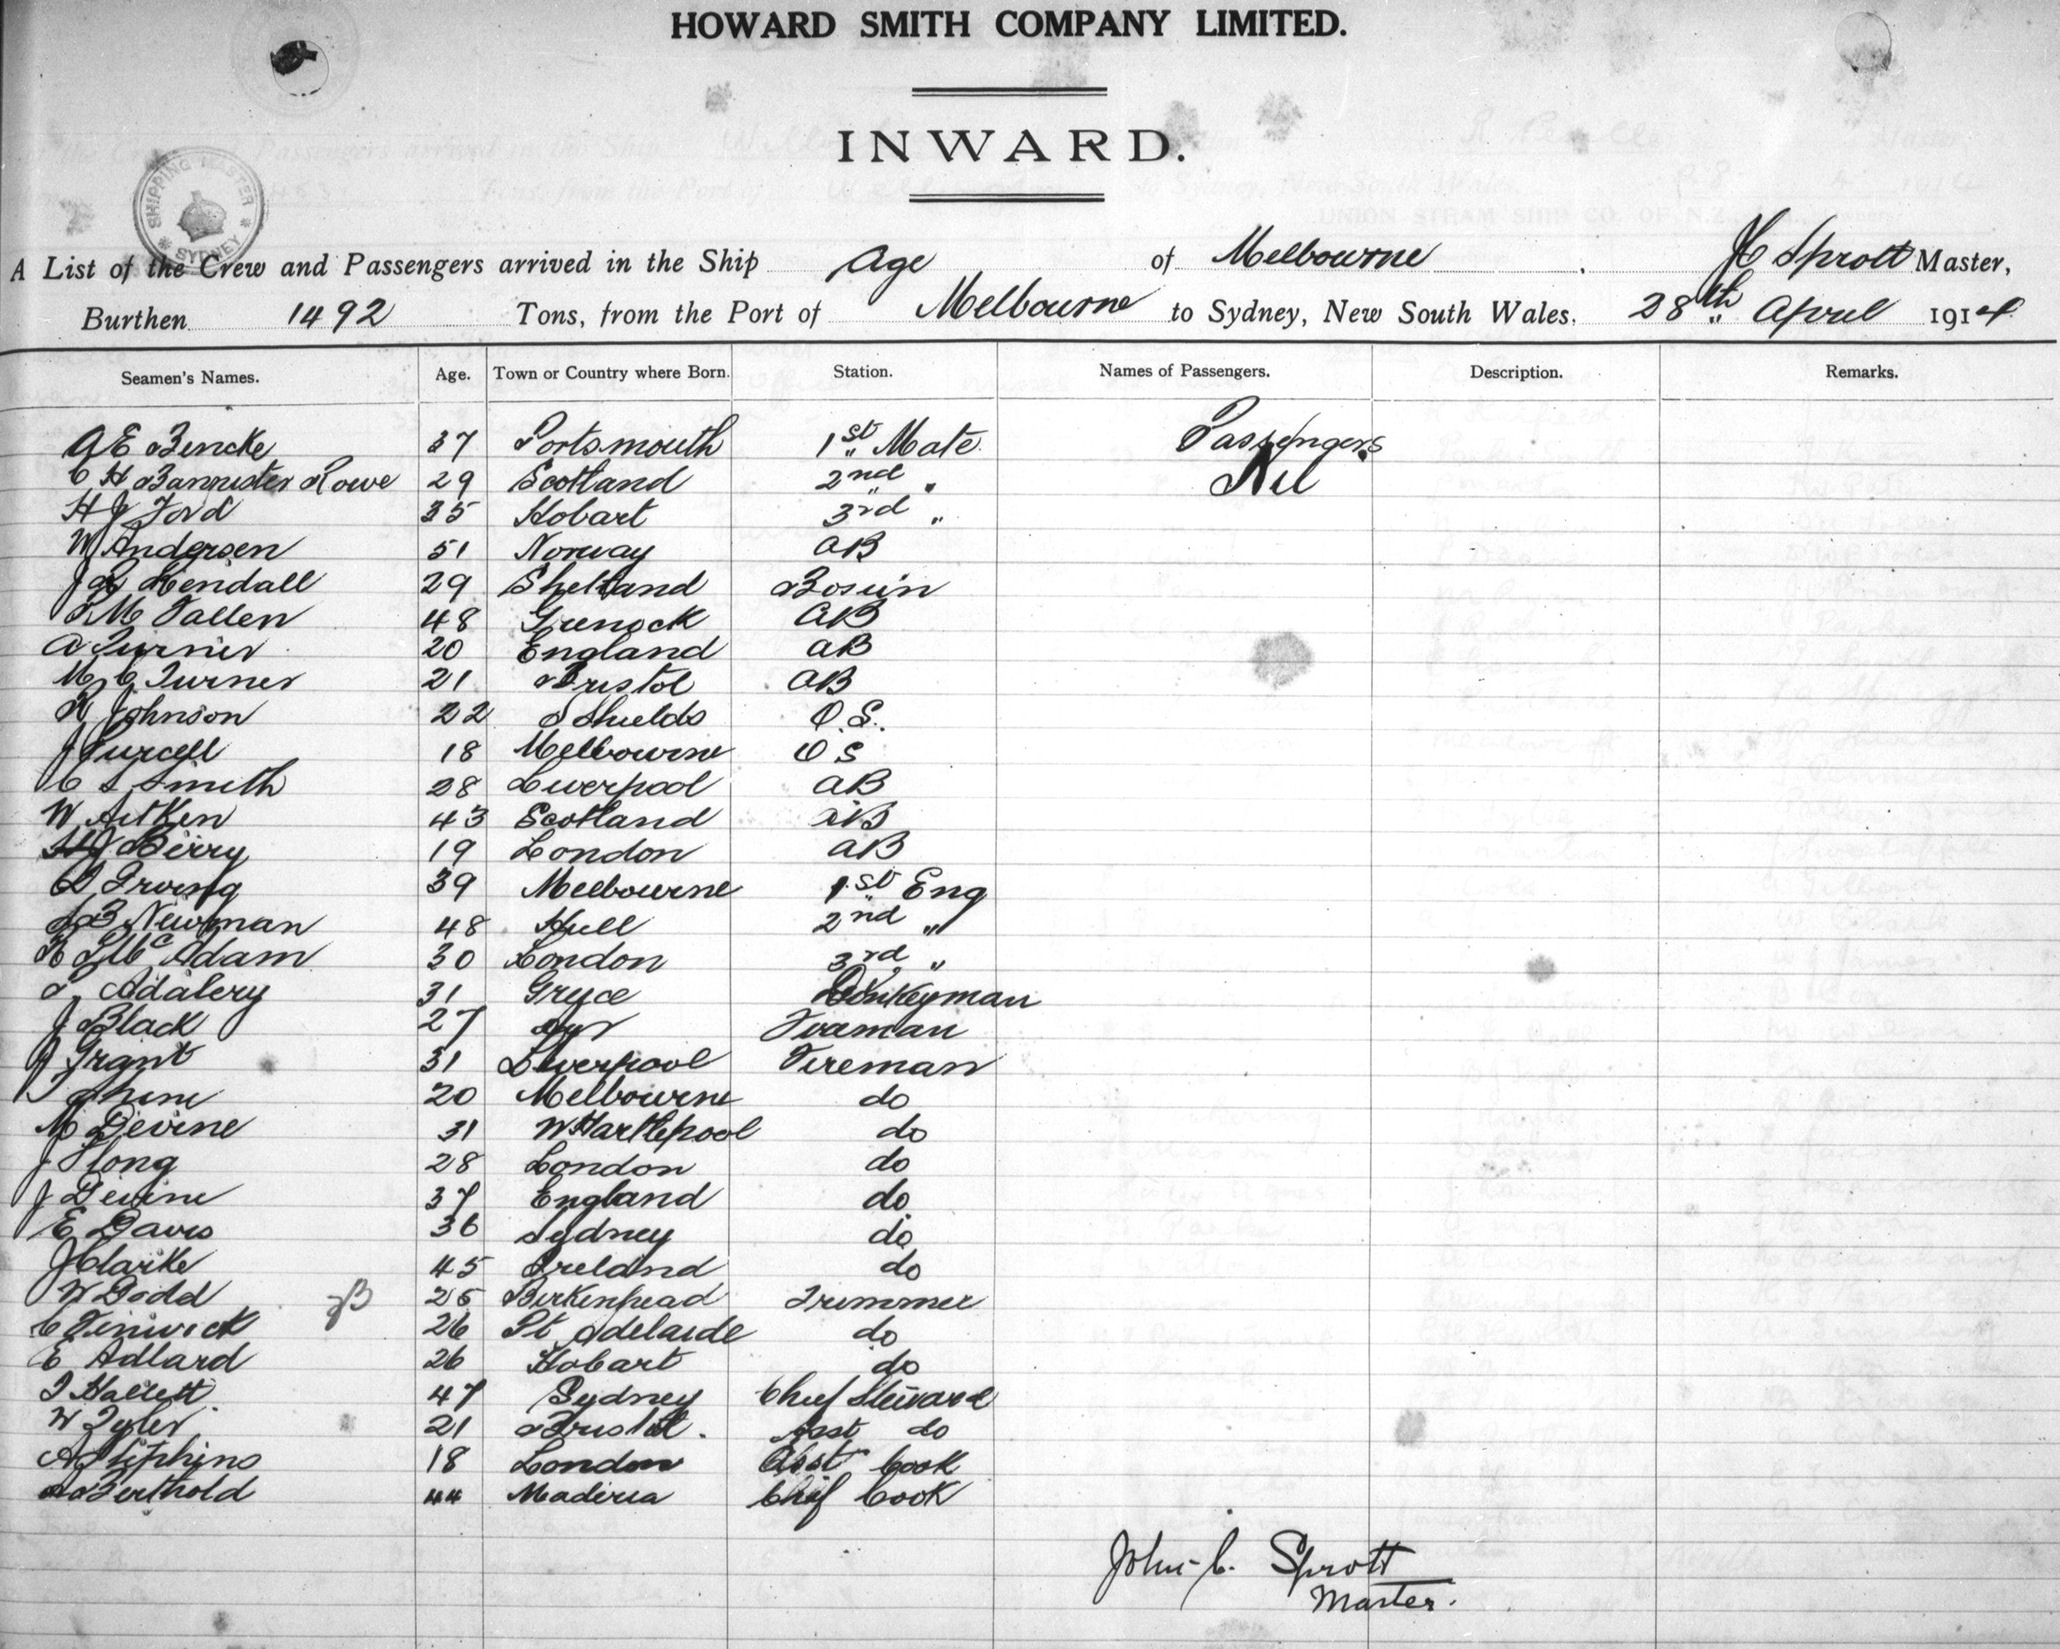 HOWARD SMITH COMPANY LIMITED.
INWARD.
SHIPPING MASTER SYDNEY
A List of the Crew and Passengers arrived in the Ship Age of Melbourne, JC Sprott Master,
Burthen 1492 Tons, from the Port of Melbourne to Sydney, New South Wales, 28th April 1914
Seamen's Names. Age. Town or Country where Born. Station. Names of Passengers. Description. Remarks.
A E Bencke 37 Portsmouth 1st Mate Passengers
C H Bannister Rowe 29 Scotland 2nd " Nil
H J Ford 35 Hobart 3rd "
W Andersen 51 Norway AB
J Kendall 29 Shetland Bosun
Fallen 48 Grenock AB
A Turner 20 England AB
M C Turner 21 Bristol AB
R Johnson 22 S Shields O.S.
J Purcell 18 Melbourne O S
C S Smith 28 Liverpool AB
W Aitken 43 Scotland AB
HJ Berry 19 London AB
D Irving 39 Melbourne 1st Eng
Newman 48 Hull 2nd "
McAdam 30 London 3rd "
Adalery 31 Gryce Donkeyman
J Black 27 Ayr Firaman
J Grant 31 Liverpool Fireman
20 Melbourne do
M Devine 31 W Hartlepool do
J Long 28 London do
J Devine 37 England do
E Davis 36 Sydney do
J Clarke 45 Ireland do
W Dodd 25 Birkenhead Trimmer
C Finwick 26 Pt Adelaide do
E Adlard 26 Hobart do
J Hallett 47 Sydney Chief Steward
W Tyler 21 Bristol. Asst do
A Stephens 18 London Asst Cook
A Berthold 44 Maderia Chief Cook
John C. Sprott
Master.